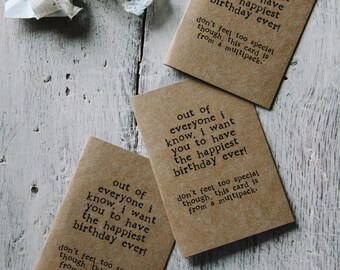 you to have
the happiest
birthday ever!
don't feel too special
though, this card is
from a multipack.
out of
everyone i
know, i want
you to have
the happiest
birthday ever!
don't feel too special
though, this card is
from a multipack.
out of
everyone i
know, i want
you to have
the happiest
birthday ever!
don't feel too special
though, this card